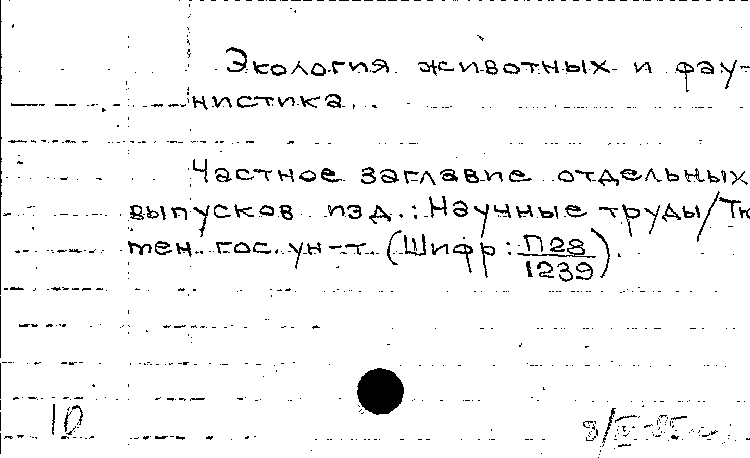 Экология животных и фау-
нистика.
Частное заглавие отдельных
выпусков изд.: Научные труды/Тю
мен. гос. ун-т (Шифр: П28
1239).
10
8/IV-85